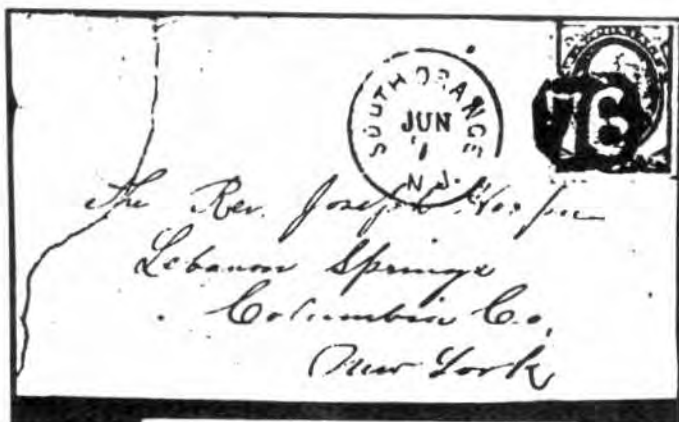 SOUTH ORANGE
JUN
1
N.J.
76
The Rev. Joseph
Lebanon Springs
Columbia Co.
New York